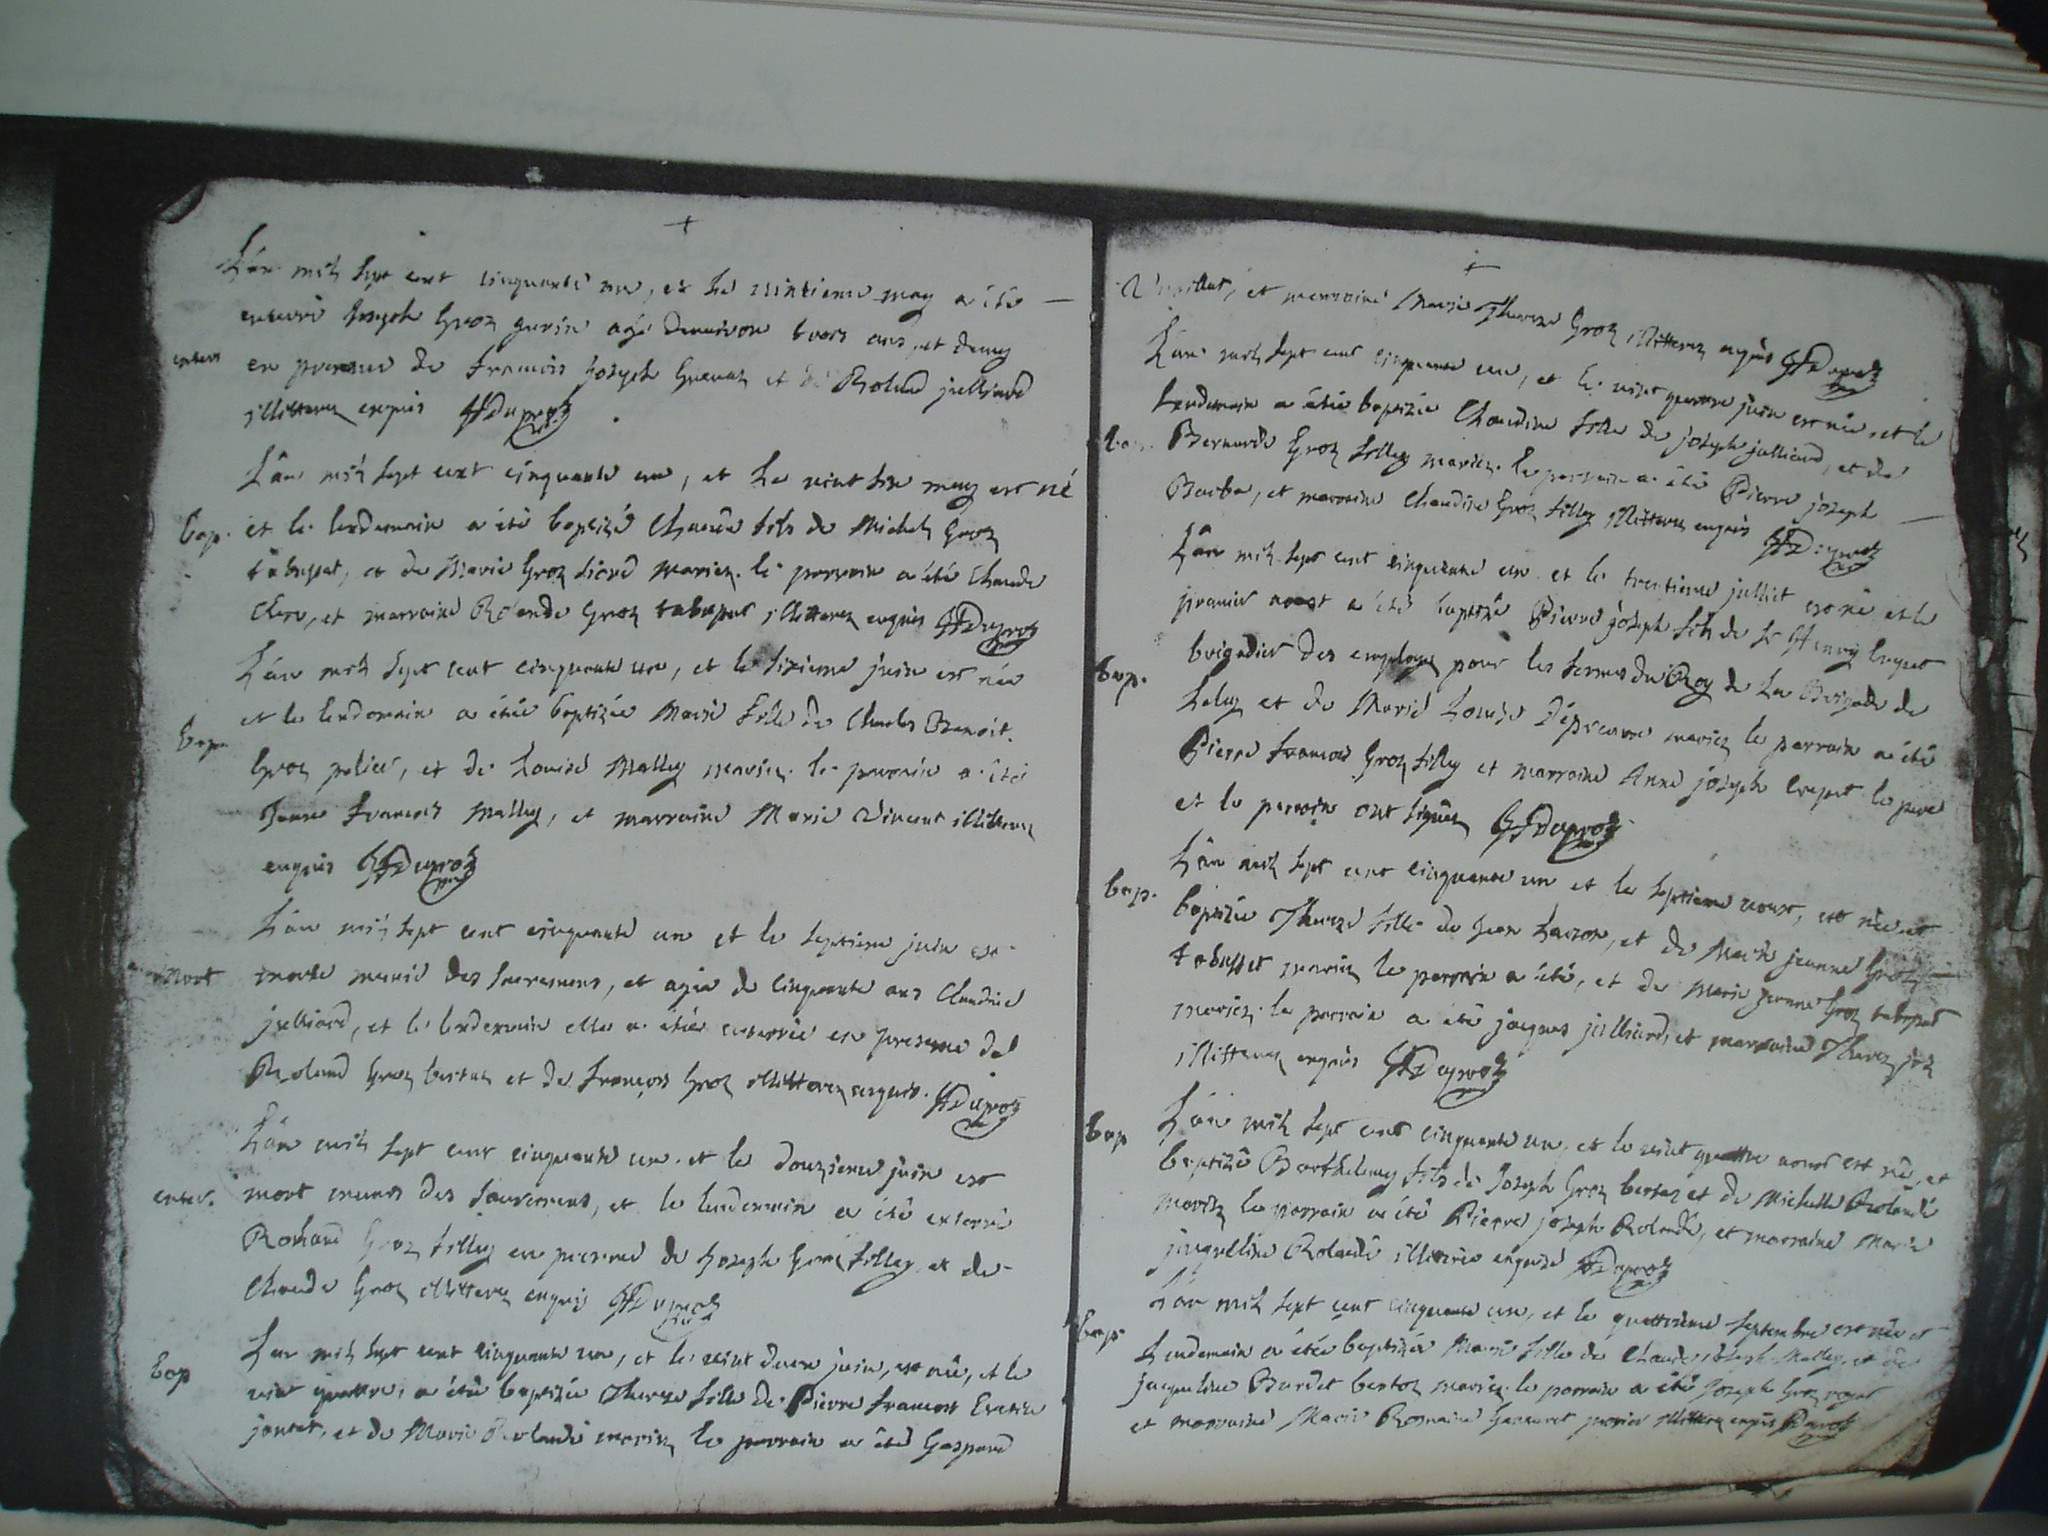 L'an mil sept cent cinquante un, et le vintieme may a été
enterré Joseph Groz gurin agé denviron trois ans et demy
enterr en presence de Francois Joseph et de Roland julliard
illitterez enquis Duproz
L'an mil sept cent cinquante un, et le vint six may est né
bap. et le lendemain a été baptizé Claude fils de Michel Groz
tabusset, et de Marie Groz mariez. le parrain a été Claude
et marraine Rolande Groz tabusset illitterez enquis Duproz
L'an mil sept cent cinquante un, et le sixieme juin est née
et le lendemain a étée baptizée Marie fille de Charles Benoit
bap. Groz et de Louise Malley mariez. le parrain a été
Jean Francois Malley, et marraine Marie Vincent illitterez
enquis Duproz
L'an mil sept cent cinquante un et le septieme juin est
mort morte munie des sacremens, et agée de cinquante ans Claudine
julliard, et le lendemain elle a étée enterrée en presence de
Roland Groz et de François Groz illitterez enquis. Duproz
L'an mil sept cent cinquante un. et le douzieme juin est
enter. mort munis des sacremens, et le lendemain a été enterré
Roland Groz filley en presence de Joseph Groz filley et de
Claude Groz illitterez enquis Duproz
L'an mil sept cent cinquante un, et le vint deux juin, est née, et le
bap vint quattre, a étée baptizée Therese fille de Pierre Francois
et de Marie Rolandé mariez le parrain a été Gaspard
et marraine Marie Therese Groz illitterez enquis Duproz
L'an mil sept cent cinquante un, et le vint quatre juin est née, et le
lendemain a étée baptizée Claudine fille de joseph julliard, et de
Bernarde Groz filley mariez. le parrain a été Pierre joseph
Barbe, et marraine Claudine Groz filley illitterez enquis Duproz
L'an mil sept cent cinquante un et le trentieme julliet est né et le
premier aoust a été baptizé Pierre joseph fils de Sr Henry
bap. brigadier des employez pour les fermes du Roy de la Brigade de
Lelex et de Marie Louise mariez le parrain a été
Pierre Francois Groz filley et marraine Anne joseph le pere
et le parrain ont signéz Duproz
L'an mil sept cent cinquante un et le septieme aoust, est née et
bap. baptizée Therese fille de Jean et de Marie jeanne Groz
tabusset mariez le parrain a été, et de Marie Jeanne Groz tabusset
mariez. le parrain a été jacques julliard, et marraine
illitterez enquis Duproz
L'an mil sept cent cinquante un, et le vint quattre aoust est né, et
bap baptizé Barthelemy fils de Joseph Groz et de Michelle Rolandé
mariez le parrain a été Pierre joseph Rolandé, et marraine Marie
jaqueline Rolandé illiterée enquise Duproz
L'an mil sept cent cinquante un, et le quattrieme septembre est née et
bap. lendemain a étée baptizée Marie fille de Claude joseph Malley, et de
jacqueline Burdet mariez. le parrain a été Joseph Groz
et marraine Marie Romaine illitterez enquis Duproz